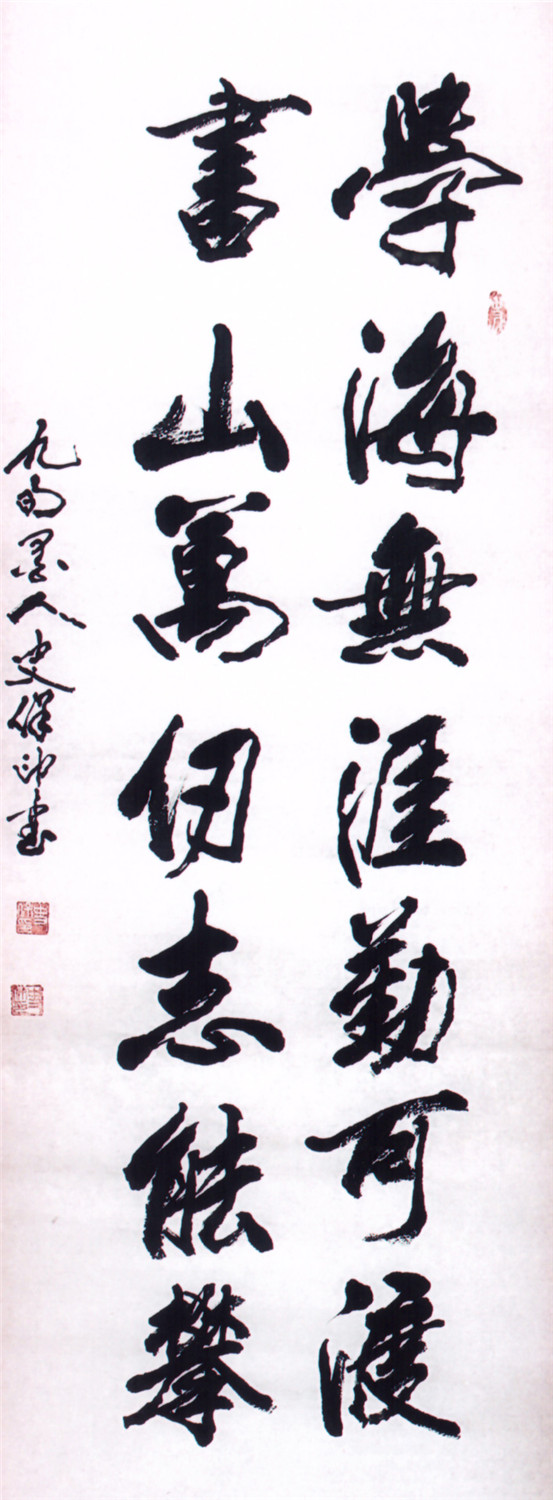 學海無涯勤可渡
書山萬仞志能攀
墨人史保印書